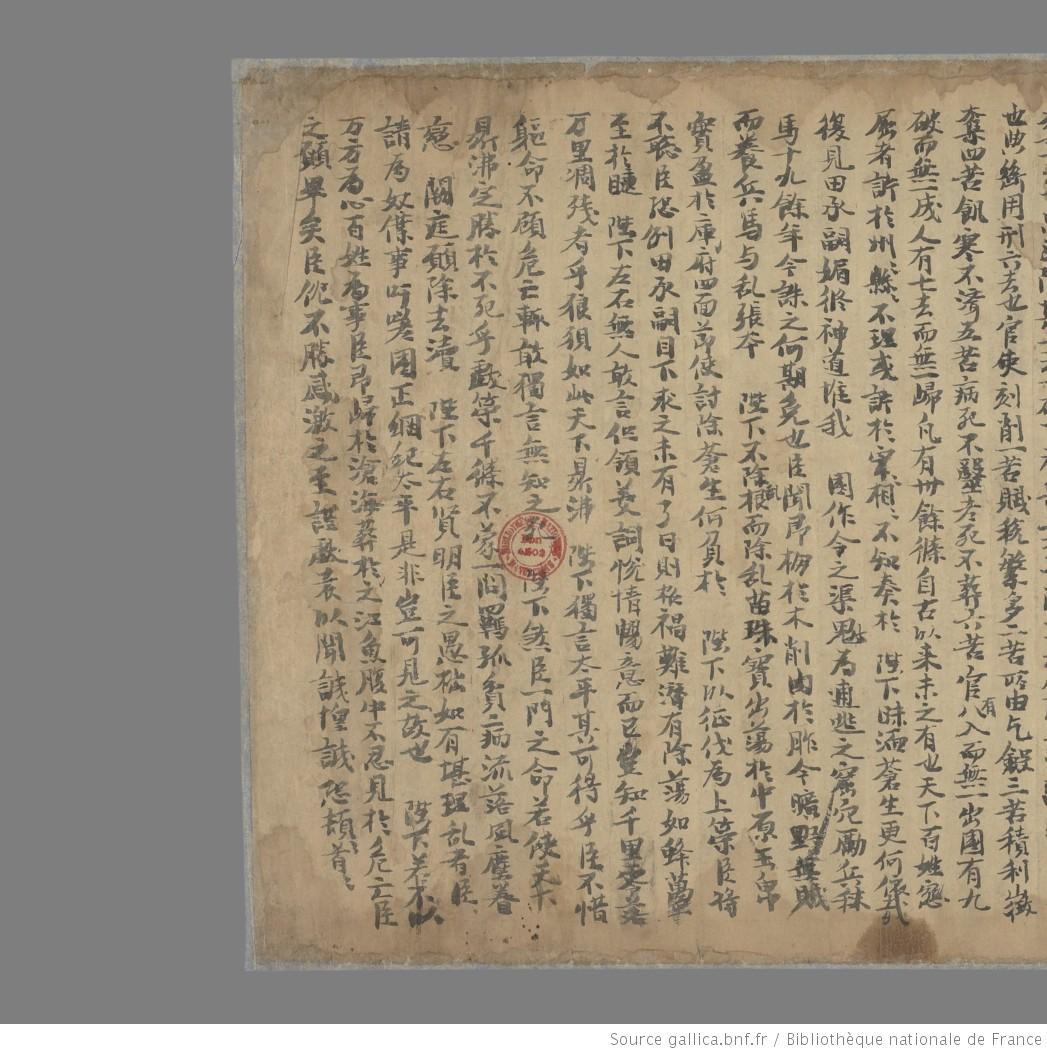 也典絲用刑六去也官使刻削一苦賦稅繁多二苦所由乞斂三苦積利徵
奪四苦飢寒不濟五苦病死不醫老死不葬六苦官有八入而無一出國有九
破而無一成人有七去而無一歸凡有卅餘條自古以来未之有也天下百姓
屈者訴於州縣不理或訴於宰相不知奏於 陛下昧洒蒼生更何
復見田承嗣媚於神道唯我 國作令之渠魁為逋逃之窟宅厲兵秣
馬十九餘年今誅之何期克也臣聞即
而養兵馬与乱張本 陛下不除梗而除乱苗珠寶出蕩於中原玉帛
寶盈於庫府四面節使討除蒼生何負於 陛下以征伐為上策臣将
不聽臣恐例田承嗣目下求之未有了日則於禍難濟有除蕩如蜂蠆
至於 陛下左右無人敢言但領美詞悅情暢意而已豈知千里
万里凋残者乎狼狽如此天下鼎沸 陛下獨言太平其可得乎臣不惜
軀命不顧危亡輒敢獨言無知之 陛下煞臣一門之命若使天下
鼎沸定勝於不死乎獻策千條不蒙一問羈孤貧病流落風塵眷
戀 闕庭願除去瀆 陛下左右賢明臣之愚於如有堪理乱者臣
請為奴僕事吁嗟國正綱紀太平是非豈可見之故也 陛下若不以
万方為心百姓為事臣即歸於滄海葬於之江魚腹中不忍見於危亡臣
之願畢矣臣仳不勝感激之至謹獻表以聞誠惶誠恐頓首〻
Source gallica.bnf.fr / Bibliothèque nationale de France